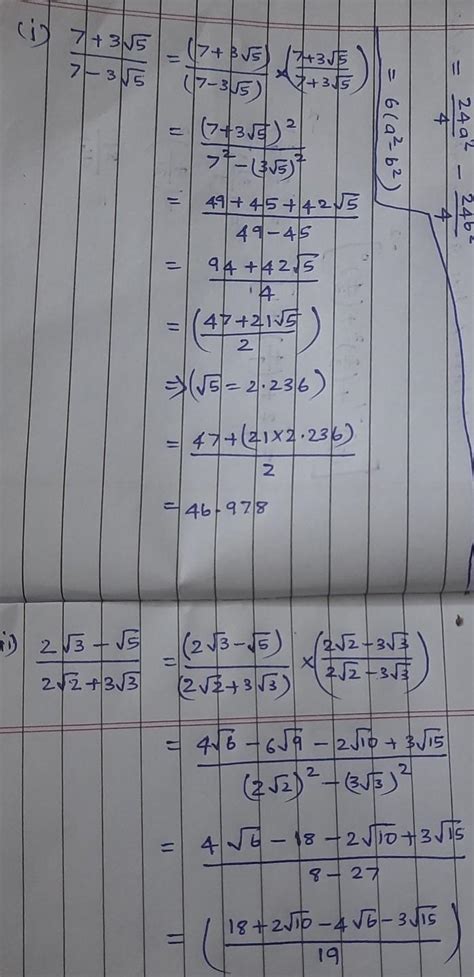 (i) (7+3√5)/(7-3√5) = (7+3√5)/(7-3√5) × (7+3√5)/(7+3√5)
= (7+3√5)²/(7² - (3√5)²)
= (49+45+42√5)/(49-45)
= (94+42√5)/4
= ((47+21√5)/2)
⇒ (√5 = 2.236)
= (47+(21×2.236))/2
= 46.978
= 24a²/4 - 24b²/4
= 6(a²-b²)
ii) (2√3-√5)/(2√2+3√3) = (2√3-√5)/(2√2+3√3) × ((2√2-3√3)/(2√2-3√3))
= (4√6-6√9-2√10+3√15)/((2√2)²-(3√3)²)
= (4√6-18-2√10+3√15)/(8-27)
= ((18+2√10-4√6-3√15)/19)